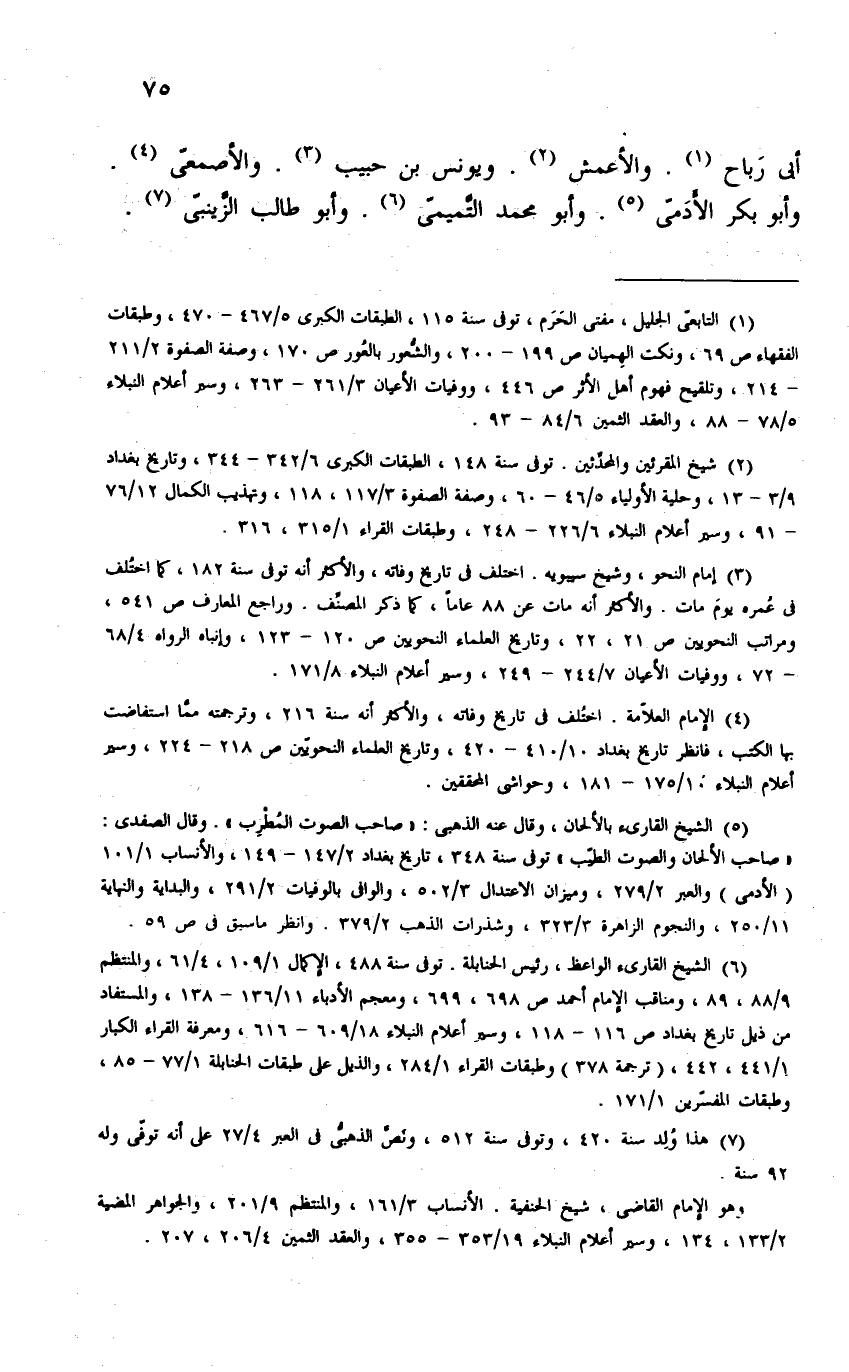 ٧٥
أبى رَباح (١) . والأعمش (٢) . ويونس بن حبيب (٣) . والأصمعىّ (٤) .
وأبو بكر الأَدَمىّ (٥) . وأبو محمد التَّميمىّ (٦) . وأبو طالب الزَّينبىّ (٧) .
(١) التابعىّ الجليل ، مفتى الحَرَم ، توفى سنة ١١٥ ، الطبقات الكبرى ٤٦٧/٥ – ٤٧٠ ، وطبقات
الفقهاء ص ٦٩ ، ونكت الهِميان ص ١٩٩ – ٢٠٠ ، والشُّعور بالعُور ص ١٧٠ ، وصفة الصفوة ٢١١/٢
– ٢١٤ ، وتلقيح فهوم أهل الأثر ص ٤٤٦ ، ووفيات الأعيان ٢٦١/٣ – ٢٦٣ ، وسير أعلام النبلاء
٧٨/٥ – ٨٨ ، والعقد الثمين ٨٤/٦ – ٩٣ .
(٢) شيخ المقرئين والمحدّثين . توفى سنة ١٤٨ ، الطبقات الكبرى ٣٤٢/٦ – ٣٤٤ ، وتاريخ بغداد
٣/٩ – ١٣ ، وحلية الأولياء ٤٦/٥ – ٦٠ ، وصفة الصفوة ١١٧/٣ ، ١١٨ ، وتهذيب الكمال ٧٦/١٢
– ٩١ ، وسير أعلام النبلاء ٢٢٦/٦ – ٢٤٨ ، وطبقات القراء ٣١٥/١ ، ٣١٦ .
(٣) إمام النحو ، وشيخ سيبويه . اختلف فى تاريخ وفاته ، والأكثر أنه توفى سنة ١٨٢ ، كما اختُلف
فى عُمره يومَ مات . والأكثر أنه مات عن ٨٨ عاماً ، كما ذكر المصنِّف . وراجع المعارف ص ٥٤١ ،
ومراتب النحويين ص ٢١ ، ٢٢ ، وتاريخ العلماء النحويين ص ١٢٠ – ١٢٣ ، وإنباه الرواه ٦٨/٤
– ٧٢ ، ووفيات الأعيان ٢٤٤/٧ – ٢٤٩ ، وسير أعلام النبلاء ١٧١/٨ .
(٤) الإمام العلاّمة . اختُلف فى تاريخ وفاته ، والأكثر أنه سنة ٢١٦ ، وترجمته ممَّا استفاضت
بها الكتب ، فانظر تاريخ بغداد ٤١٠/١٠ – ٤٢٠ ، وتاريخ العلماء النحويّين ص ٢١٨ – ٢٢٤ ، وسير
أعلام النبلاء ١٧٥/١٠ – ١٨١ ، وحواشى المحققين .
(٥) الشيخ القارىء بالألحان ، وقال عنه الذهبى : « صاحب الصوت المُطْرِب » . وقال الصفدى :
« صاحب الألحان والصوت الطيّب » توفى سنة ٣٤٨ ، تاريخ بغداد ١٤٧/٢ – ١٤٩ ، والأنساب ١٠١/١
( الأدمى ) والعبر ٢٧٩/٢ ، وميزان الاعتدال ٥٠٢/٣ ، والوافى بالوفيات ٢٩١/٢ ، والبداية والنهاية
٢٥٠/١١ ، والنجوم الزاهرة ٣٢٣/٣ ، وشذرات الذهب ٣٧٩/٢ . وانظر ماسبق فى ص ٥٩ .
(٦) الشيخ القارىء الواعظ ، رئيس الحنابلة . توفى سنة ٤٨٨ ، الإكمال ١٠٩/١ ، ٦١/٤ ، والمنتظم
٨٨/٩ ، ٨٩ ، ومناقب الإمام أحمد ص ٦٩٨ ، ٦٩٩ ، ومعجم الأدباء ١٣٦/١١ – ١٣٨ ، والمستفاد
من ذيل تاريخ بغداد ص ١١٦ – ١١٨ ، وسير أعلام النبلاء ٦٠٩/١٨ – ٦١٦ ، ومعرفة القراء الكبار
٤٤١/١ ، ٤٤٢ ، ( ترجمة ٣٧٨ ) وطبقات القراء ٢٨٤/١ ، والذيل على طبقات الحنابلة ٧٧/١ – ٨٥ ،
وطبقات المفسّرين ١٧١/١ .
(٧) هذا وُلِد سنة ٤٢٠ ، وتوفى سنة ٥١٢ ، ونَصَّ الذهبىُّ فى العبر ٢٧/٤ على أنه توفّى وله
٩٢ سنة .
وهو الإمام القاضى ، شيخ الحنفية . الأنساب ١٦١/٣ ، والمنتظم ٢٠١/٩ ، والجواهر المضية
١٣٣/٢ ، ١٣٤ ، وسير أعلام النبلاء ٣٥٣/١٩ – ٣٥٥ ، والعقد الثمين ٢٠٦/٤ ، ٢٠٧ .